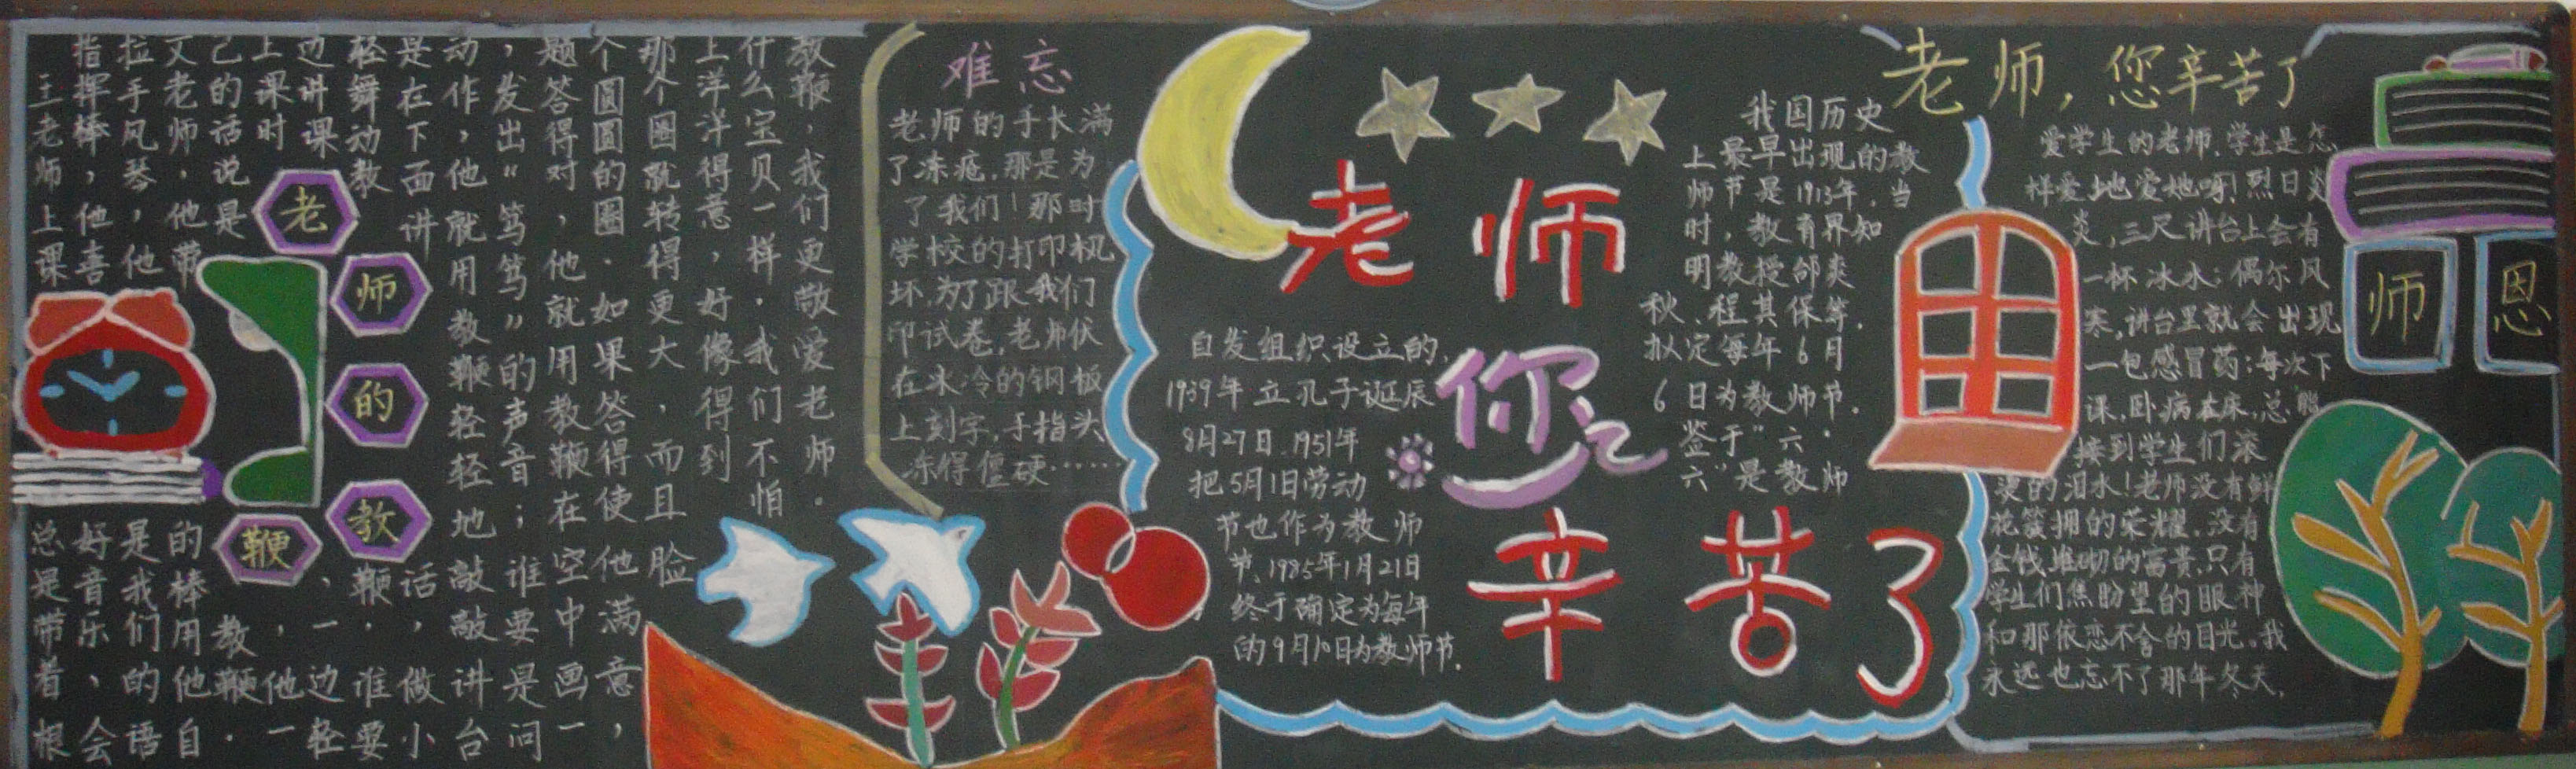 老师的教鞭
王老师上课总是带着根
指挥棒，他喜好音乐，会
拉手风琴，他是我们的语
文老师，他带的棒用他自
己的话说是教鞭．
上课时，他一
边讲课、一边轻
轻舞动教鞭，谁要
是在下面讲话，做小
动作，他就用教鞭轻轻地敲敲讲台
，发出“笃笃”的声音；谁要是问
题答得对，他就用教鞭在空中画一
个圆圆的圈．如果答得使他满意，
那个圈就转得更大，而且脸
上洋洋得意，好像得到
什么宝贝一样．我们不怕
教鞭，我们更敬爱老师．
难忘
老师的手长满
了冻疮，那是为
了我们！那时
学校的打印机
坏，为了跟我们
印试卷，老师伏
在冰冷的钢板
上刻字，手指头
冻得僵硬……
老师
您
辛苦了
我国历史
上最早出现的教
师节是1913年．当
时，教育界知
明教授邰爽
秋、程其保等．
拟定每年6月
6日为教师节．
签于“六·
六”是教师
自发组织设立的．
1939年立孔子诞辰
8月27日．1951年
把5月1日劳动
节也作为教师
节．1985年1月21日
终于确定为每年
的9月10日为教师节．
老师，您辛苦了
爱学生的老师，学生是怎
样爱地爱她呀！烈日炎
炎，三尺讲台上会有
一杯冰水；偶尔风
寒，讲台里就会出现
一包感冒药；每次下
课，卧病在床，总能
接到学生们滚
烫的泪水！老师没有鲜
花簇拥的荣耀，没有
金钱堆砌的富贵，只有
学生们焦盼望的眼神
和那依恋不舍的目光。我
永远也忘不了那年冬天，
师恩